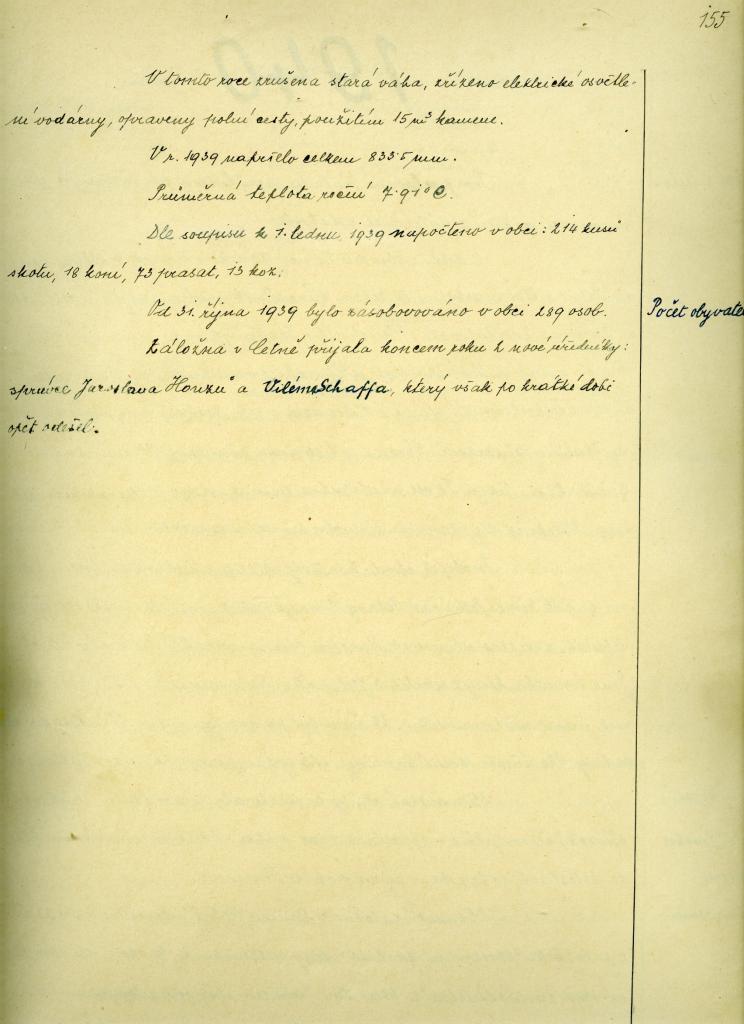 155
V tomto roce zrušena stará váha, zřízeno elektrické osvětle-
ní vodárny, opraveny polní cesty, použitím 15 m³ kamene.
V r. 1939 napršelo celkem 833·5 mm.
Průměrná teplota roční 7·91° C.
Dle soupisu k 1. lednu 1939 napočteno v obci: 214 kusů
skotu, 18 koní, 73 prasat, 13 koz.
Od 31. října 1939 bylo zásobovováno v obci 289 osob.
Počet obyvatel
Záložna v Letně přijala koncem roku 2 nové úředníky:
správce Jaroslava Honzů a Viléma Schaffa, který však po krátké dobi
opět odešel.